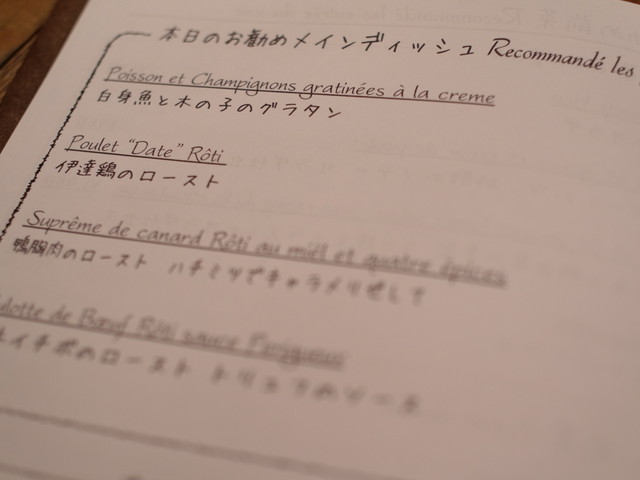 本日のお勧めメインディッシュ Recommandé les
Poisson et Champignons gratinées à la creme
白身魚と木の子のグラタン
Poulet “Date” Rôti
伊達鶏のロースト
Suprême de canard Rôti au miel et quatre épices
鴨胸肉のロースト ハチミツでキャラメリゼして
de Bœuf Rôti sauce Perigueux
イチボのロースト トリュフのソース